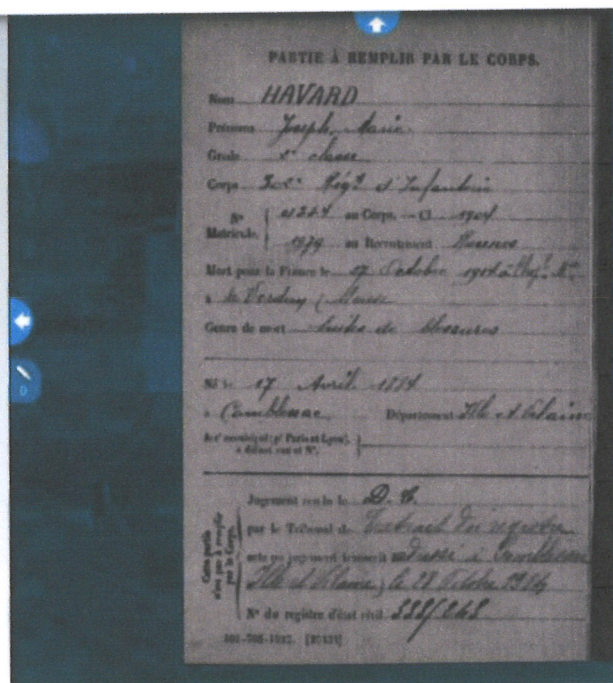 PARTIE À REMPLIR PAR LE CORPS.
Nom HAVARD
Prénoms Joseph Marie
Grade 2e classe
Corps Régt d'Infanterie
No Matricule. au Corps. — Cl. 1904
1979 au Recrutement Rennes
Mort pour la France le 17 Octobre à
à Verdun (Meuse
Genre de mort Suites de blessures
Né le 17 Avril 1884
à Département Ille et Vilaine
Arrt municipal (pr Paris et Lyon), à défaut rue et No.
Cette partie n'est pas à remplir par le Corps.
Jugement rendu le D. C.
par le Tribunal de Extrait du registre
acte ou jugement transcrit adressé à
Ille et Vilaine, le 28 Octobre
No du registre d'état civil
0